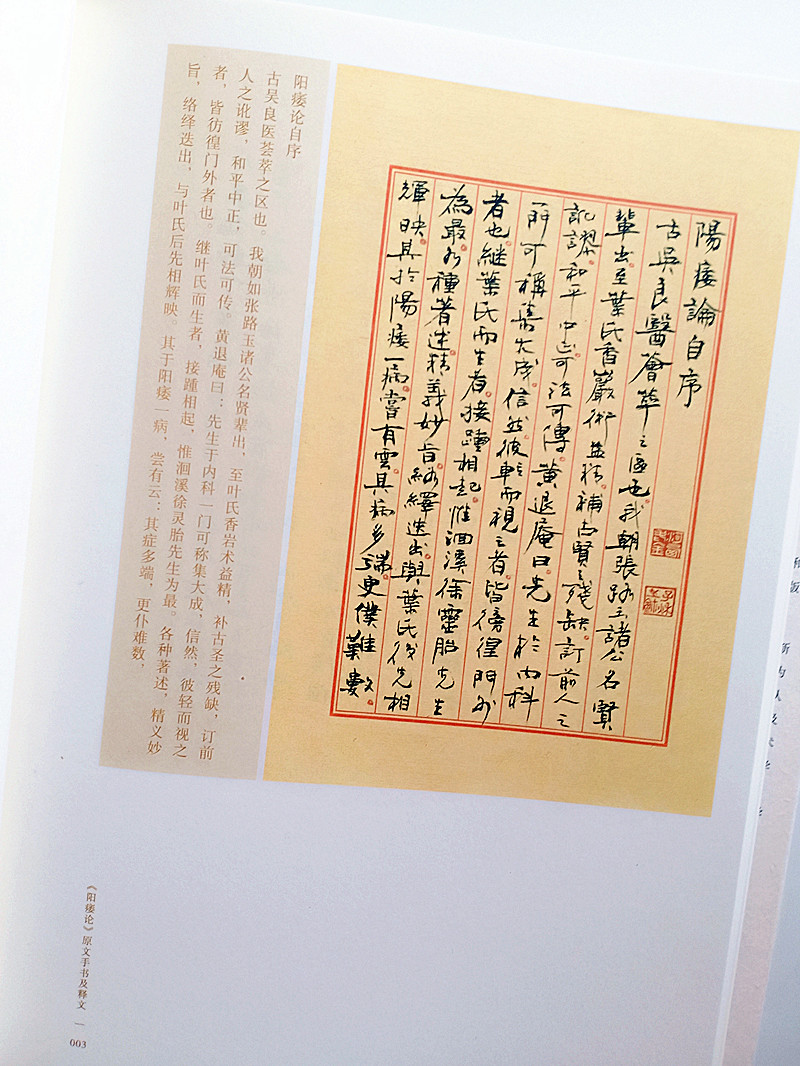 陽痿論自序
古吳良醫薈萃之區也。我朝張路玉諸公名賢
輩出。至葉氏香巖術益精。補古賢之殘缺。訂前人之
訛謬。和平中正可法可傳。黃退庵曰。先生於內科
一門可稱集大成。信然。彼輕而視之者。皆徬徨門外
者也。繼葉氏而生者。接踵相起。惟洄溪徐靈胎先生
為最。各種著述。精義妙旨。絡繹迭出。與葉氏後先相
輝映。其於陽痿一病。嘗有雲其病多端。更僕難數。
阳痿论自序
古吴良医荟萃之区也。我朝如张路玉诸公名贤辈出，至叶氏香岩术益精，补古圣之残缺，订前
人之讹谬，和平中正，可法可传。黄退庵曰：先生于内科一门可称集大成，信然，彼轻而视之
者，皆彷徨门外者也。继叶氏而生者，接踵相起，惟洄溪徐灵胎先生为最。各种著述，精义妙
旨，络绎迭出，与叶氏后先相辉映。其于阳痿一病，尝有云：其症多端，更仆难数，
《阳痿论》原文手书及释文
003